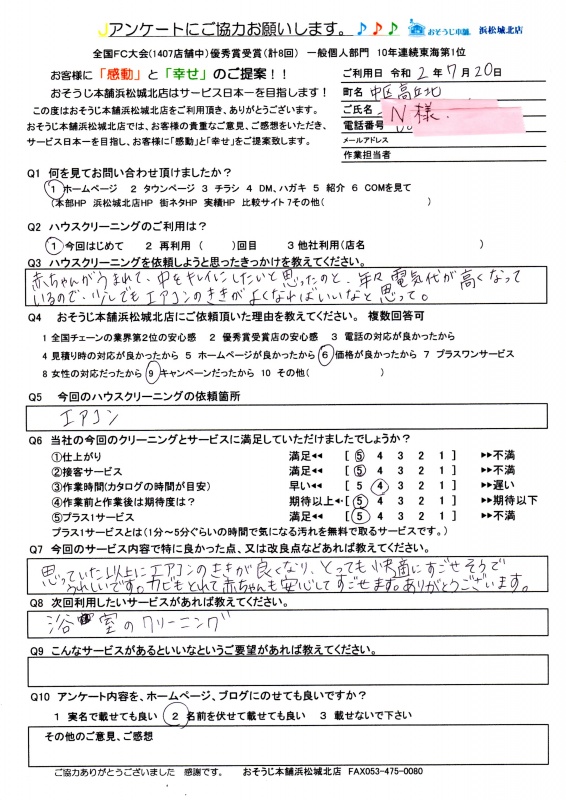 アンケートにご協力お願いします。 おそうじ本舗 浜松城北店
全国FC大会(1407店舗中)優秀賞受賞(計8回) 一般個人部門 10年連続東海第1位
お客様に「感動」と「幸せ」のご提案！！
おそうじ本舗浜松城北店はサービス日本一を目指します！
この度はおそうじ本舗浜松城北店をご利用頂き、ありがとうございます。
おそうじ本舗浜松城北店では、お客様の貴重なご意見、ご感想をいただき、
サービス日本一を目指し、お客様に「感動」と「幸せ」をご提案致します。
ご利用日 令和 2年 7月 20日
町名 中区高丘北
ご氏名 N様.
電話番号
メールアドレス
作業担当者
Q1 何を見てお問い合わせ頂けましたか？
1 ホームページ 2 タウンページ 3 チラシ 4 DM、ハガキ 5 紹介 6 COMを見て
(本部HP 浜松城北店HP 街ネタHP 実績HP 比較サイト 7その他( )
Q2 ハウスクリーニングのご利用は？
1 今回はじめて 2 再利用 ( )回目 3 他社利用(店名 )
Q3 ハウスクリーニングを依頼しようと思ったきっかけを教えてください。
赤ちゃんがうまれて、中をキレイにしたいと思ったのと、年々電気代が高くなって
いるので、少しでもエアコンのききがよくなればいいなと思って。
Q4 おそうじ本舗浜松城北店にご依頼頂いた理由を教えてください。 複数回答可
1 全国チェーンの業界第2位の安心感 2 優秀賞受賞店の安心感 3 電話の対応が良かったから
4 見積り時の対応が良かったから 5 ホームページが良かったから 6 価格が良かったから 7 プラスワンサービス
8 女性の対応だったから 9 キャンペーンだったから 10 その他( )
Q5 今回のハウスクリーニングの依頼箇所
エアコン
Q6 当社の今回のクリーニングとサービスに満足していただけましたでしょうか？
①仕上がり 満足◂◂ [ 5 4 3 2 1 ] ▸▸不満
②接客サービス 満足◂◂ [ 5 4 3 2 1 ] ▸▸不満
③作業時間(カタログの時間が目安) 早い◂◂ [ 5 4 3 2 1 ] ▸▸遅い
④作業前と作業後は期待度は？ 期待以上◂◂ [ 5 4 3 2 1 ] ▸▸期待以下
⑤プラス1サービス 満足◂◂ [ 5 4 3 2 1 ] ▸▸不満
プラス1サービスとは(1分～5分ぐらいの時間で気になる汚れを無料で取るサービスです。)
Q7 今回のサービス内容で特に良かった点、又は改良点などあれば教えてください。
思っていた以上にエアコンのききが良くなり、とっても快適にすごせそうで
うれしいです。カビもとれて赤ちゃんも安心してすごせます。ありがとうございます。
Q8 次回利用したいサービスがあれば教えてください。
浴室のクリーニング
Q9 こんなサービスがあるといいなというご要望があれば教えてください。
Q10 アンケート内容を、ホームページ、ブログにのせても良いですか？
1 実名で載せても良い 2 名前を伏せて載せても良い 3 載せないで下さい
その他のご意見、ご感想
ご協力ありがとうございました 感謝です。 おそうじ本舗浜松城北店 FAX053-475-0080